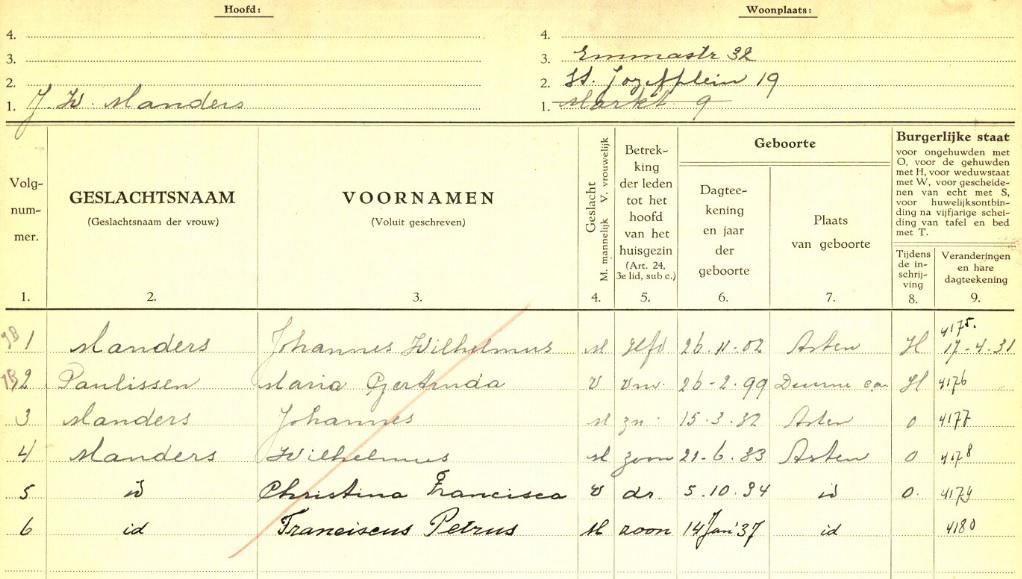 Hoofd: Woonplaats:
4. 4.
3. 3. Emmastr 32
2. 2. St. Jozefplein 19
1. J. W. Manders 1. Markt 9
Volgnummer. GESLACHTSNAAM (Geslachtsnaam der vrouw) VOORNAMEN (Voluit geschreven) Geslacht M. mannelijk V. vrouwelijk Betrekking der leden tot het hoofd van het huisgezin (Art. 24, 3e lid, sub c.) Geboorte Dagteekening en jaar der geboorte Plaats van geboorte
Burgerlijke staat
voor ongehuwden met
O, voor de gehuwden
met H, voor weduwstaat
met W, voor gescheidenen
van echt met S,
voor huwelijksontbinding
na vijfjarige scheiding
van tafel en bed
met T.
Tijdens de inschrijving Veranderingen en hare dagteekening
1. 2. 3. 4. 5. 6. 7. 8. 9.
1 Manders Johannes Wilhelmus M hfd 26.11.02 Asten H 4175. 17-4-31
2 Paulissen Maria Gertruda V vrw 26-2-99 Deurne ca H 4176
3 Manders Johannes M zn 15-3-32 Asten O 4177
4 Manders Wilhelmus M zoon 21-6-33 Asten O 4178
5 id Christina Francisca V dr. 5.10.34 id O. 4179
6 id Franciscus Petrus M zoon 14 Jan '37 id 4180